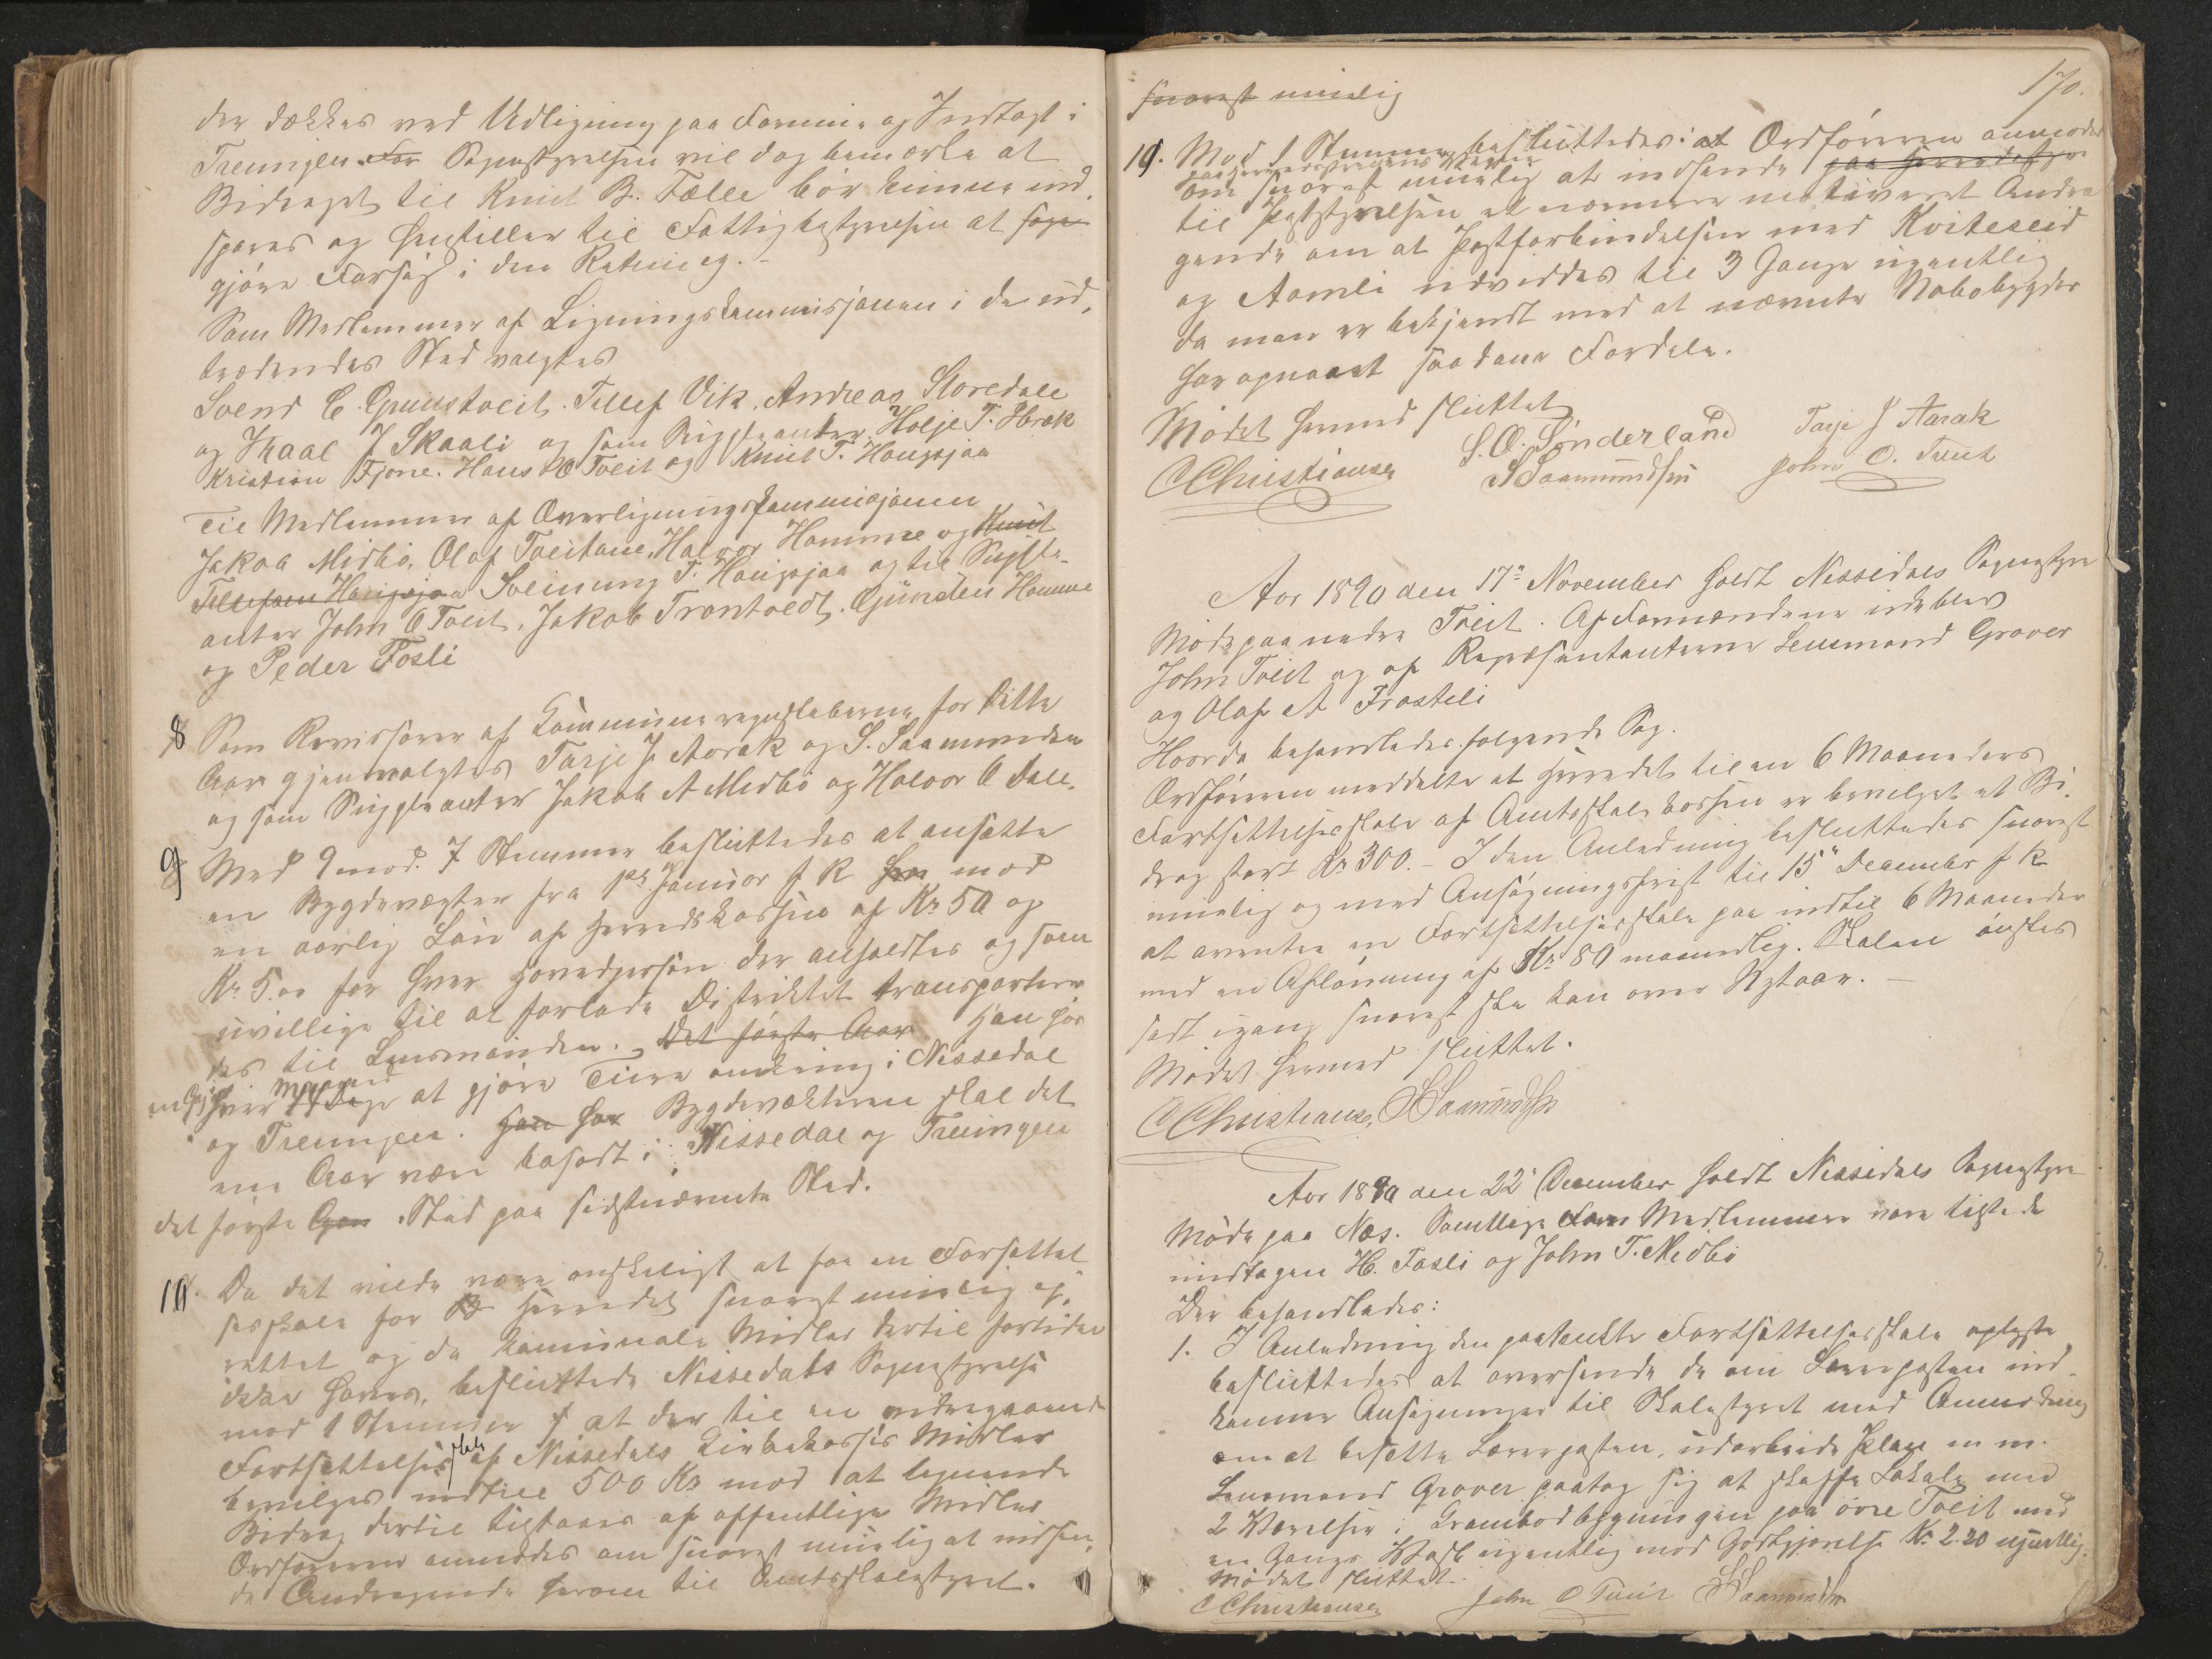 der dækkes ved Udligning paa Formue og Indtægt i
Treungen. For Sognestyrelsen vil dog bemærke at
Bidraget til Knut B. Fælle bør kunne ind
spares og henstiller til Fattigbestyrelsen at søge
gjøre Forsøg i den Retning. -
Som Medlemmer af Ligningskommisjonen i de ud-
trædendes Sted valgtes
Svend C. Grunstveit. Tellef Vik. Andreas Storedale
og Thaal J Skaali og som Suppleanter Holje T. Haak
Kristian Fjone. Hans O Tveit og Knut T. Haugsjaa
Til Medlemmer af Overligningskommisjonen
Jakob Midbö, Olaf Tveitane, Halvor Hamme og Knut
Tellefsen Haugsjaa Sveinung T. Haugsjaa og til Supple-
anter John O Tveit, Jakob Trontvedt. Gunder Hamme
og Peder Fosli
8 Som Revisorer af Kommuneregnskaberne for dette
Aar gjenvalgtes Tarje J. Aarak og S. Saamundsen
og som Suppleanter Jakob A Midbö og Halvor O Dale.
9 Med 9 mod 7 Stemmer besluttedes at ansætte
en Bygdevægter fra 1ste Januar f k mod
en aarlig Løn af Herredskassen af Kr 50 og
Kr 5.00 for hver Hovedperson der anholdtes og som
uvillige til at forlade Distriktet transportere
des til Lensmanden. Det første Aar Han har
en Gang hver Maaned 14 Dage at gjøre Ture omkring i Nissedal
og Treungen. Han har Bygdevægteren skal det
ene Aar være bosat i Nissedal og Treungen
det første Gan. Stad paa sidstnævnte Sted.
10. Da det vilde være ønskeligt at faa en Forsættel
sesskole for B Herredet snarest mulig op-
rettet og da kommunale Midler dertil fortiden
ikke haves, besluttede Nissedals Sognestyrelse
mod 1 Stemme at der til en vedrørende
Fortsættelsesskole af Nissedals Kirkekasses Midler
bevilges indtil 500 Kr mod at lignende
Bidrag dertil tilstaaes af offentlige Midler
Ordføreren anmodes om snarest mulig at indsen-
de Andragende herom til Amtsskolestyret.
170.
snarest mulig
10. Mod 1 Stemme besluttedes: at Ordføreren anmodes
paa Herredsstyrelsens Vegne
om snarest mulig at indsende paa Herredsstyre
til Poststyrelsen et nærmere motiveret Andra
gende om at Postforbindelsen med Kviteseid
og Aamli udviddes til 3 Gange ugentlig
da man er bekjendt med at nævnte Nabobygder
har opnaaet saadane Fordele.
Mødet hermed sluttet
C Christiansen S. O. Sönderland Tarje J Aarak
S Saamundsen John O. Tveit
Aar 1890 den 17de November holdt Nissedals Sognestyre
Møde paa nedre Tveit. Af Formændene udeblev
John Tveit og af Repræsentanterne Lensmand Grover
og Olaf A Frosteli
Hvorda behandledes følgende Sag.
Ordføreren meddelte at Herredet til en 6 Maaneders
Fortsættelsesskole af Amtsskolekassen er bevilget et Bi
drag stort Kr 300. - I den Anledning besluttedes snarest
mulig og med Ansøgningsfrist til 15de December f k
at averter en Fortsættelsesskole paa indtil 6 Maaneder
med en Aflønning af Kr 80 maanedlig. Skolen ønskes
sat igang snarest ske kan over Nytaar. -
Mødet hermed sluttet.
C Christiansen, S Saamundsen
Aar 1890 den 22de December holdt Nissedals Sognestyre
Møde paa Næs. Samtlige Form Medlemmer vare tilstede
undtagen H. Fosli og John T. Medbö
Der behandledes:
1. I Anledning den paatænkte Fortsættelsesskole oplyste
besluttedes at oversende de om Lærerposten ind
komne Ansøgninger til Skolestyret med Anmodning
om at besætte Lærerposten, udarbeide Plan m. m.
Lensmand Grover paatog sig at skaffe Lokale med
2 Værelser i Krambodbygningen paa övre Tveit med
en Gangs Vask ugentlig mod Godtgjørelse Kr 2.20 ugentlig.
Mødet sluttet.
C Christiansen John O Tveit S Saamundsen